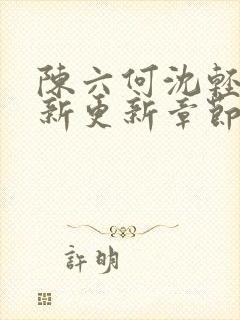 陳六何沈輕
新更新章節
許明